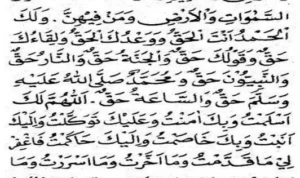 السَّمٰوَاتِ وَالْأَرْضِ وَمَنْ فِيهِنَّ. وَلَكَ
الْحَمْدُ اَنْتَ الْحَقُّ وَوَعْدُكَ الْحَقُّ وَلِقَاءُكَ
حَقٌّ وَقَوْلُكَ حَقٌّ وَالْجَنَّةُ حَقٌّ وَالنَّارُ حَقٌّ
وَالنَّبِيُّوْنَ حَقٌّ وَمُحَمَّدٌ صَلَّى اللهُ عَلَيْهِ
وَسَلَّمَ حَقٌّ وَالسَّاعَةُ حَقٌّ. اَللّٰهُمَّ لَكَ
اَسْلَمْتُ وَبِكَ اٰمَنْتُ وَعَلَيْكَ تَوَكَّلْتُ وَاِلَيْكَ
اَنَبْتُ وَبِكَ خَاصَمْتُ وَاِلَيْكَ حَاكَمْتُ فَاغْفِرْ
لِيْ مَا قَدَّمْتُ وَمَا اَخَّرْتُ وَمَا اَسْرَرْتُ وَمَا